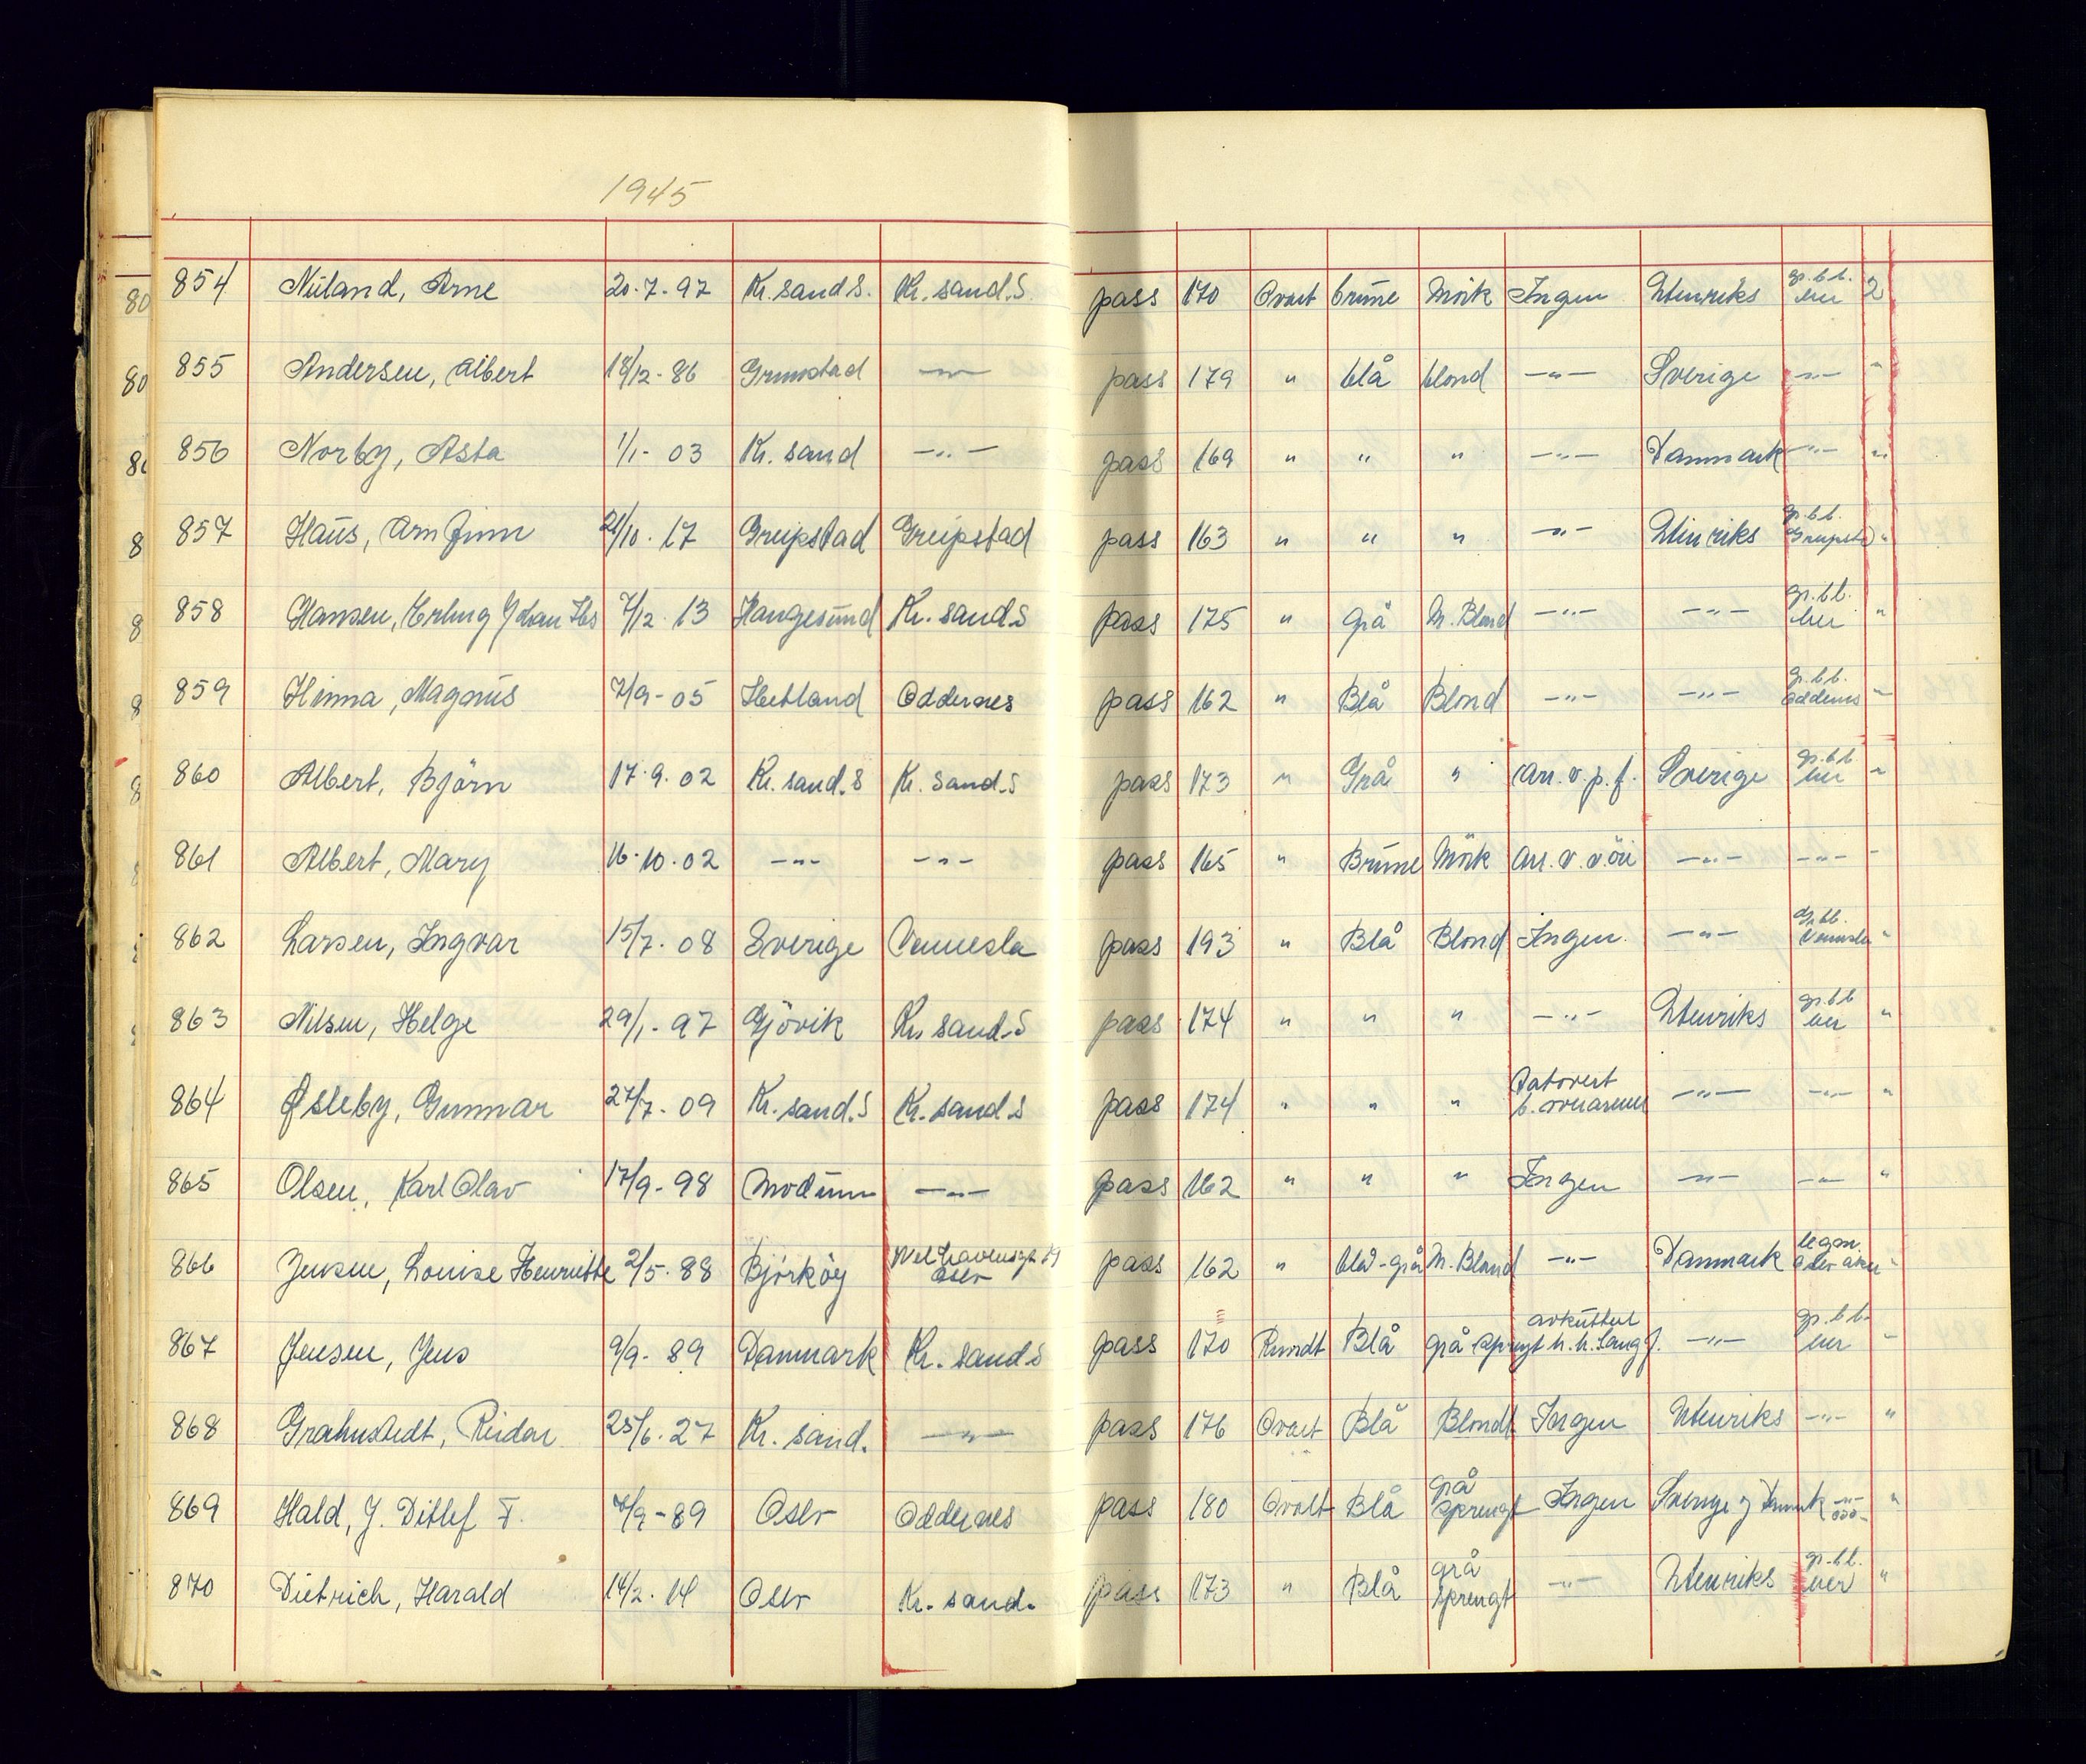 1945
854 Nuland, Arne 20.7.97 Kr.sand S. Kr.sand.S pass 170 Ovalt brune Mörk Ingen Utenriks gr.b.b. her 2
855 Andersen, Albert 18/12-86 Grimstad -"- pass 179 " blå blond -"- Sverige -"- "
856 Norby, Asta 1/1-03 Kr.sand -"- pass 169 " " " -"- Danmark -"- "
857 Haus, Arn Finn 21/10.17 Greipstad Greipstad pass 163 " " " -"- Utenriks gr.b.b. Greipstd "
858 Hansen, Erling 7/12.13 Haugesund Kr.sand.S pass 175 " grå M.Blond -"- -"- gr.bb. her "
859 Hinna, Magnus 7/9-05 Hetland Oddernes pass 162 " Blå Blond -"- -"- gr.b.b. Oddernes "
860 Albert, Björn 17.9.02 Kr.sand.S Kr.sand.S pass 173 " Grå " Arr.v.p.f. Sverige gr.bb her "
861 Albert, Mary 16.10.02 -"- -"- pass 165 " Brune Mörk Arr.v. -"- -"- -
862 Larsen, Ingvar 15/7.08 Sverige Vennesla pass 193 " Blå Blond Ingen. -"- gr.bb. Vennesla "
863 Nilsen, Helge 29/1-97 Gjövik Kr.sand.S pass 174 " " " -"- Utenriks gr.bb her "
864 Øsleby, Gunnar 27/7-09 Kr.sand.S Kr.sand.S pass 174 " " " Tatovert b. -"- -"- "
865 Olsen, Karl Olav 17/9-98 Modum -"- pass 162 " " " Ingen -"- -"- "
866 Jensen, Louise Henriette 2/5-88 Björköy Oslo pass 162 " blå-grå M.Blond -"- Danmark legm. "
867 Jensen, Jens 9/9-89 Danmark Kr.sand S pass 170 Rundt Blå grå sprengt avkuttet h.h.langf. -"- gr.b.b. her "
868 Grahnstedt, Reidar 25/6.27 Kr.sand. -"- pass 176 Ovalt Blå Blondt Ingen Utenriks -"- "
869 Hald, J. Ditlef F. 7/9-89 Oslo Oddernes pass 180 Ovalt Blå grå sprengt Ingen Sverige -"- "
870 Dietrich, Harald 14/2.14 Oslo Kr.sand. pass 173 " Blå grå sprengt -"- Utenriks gr.bb. her "